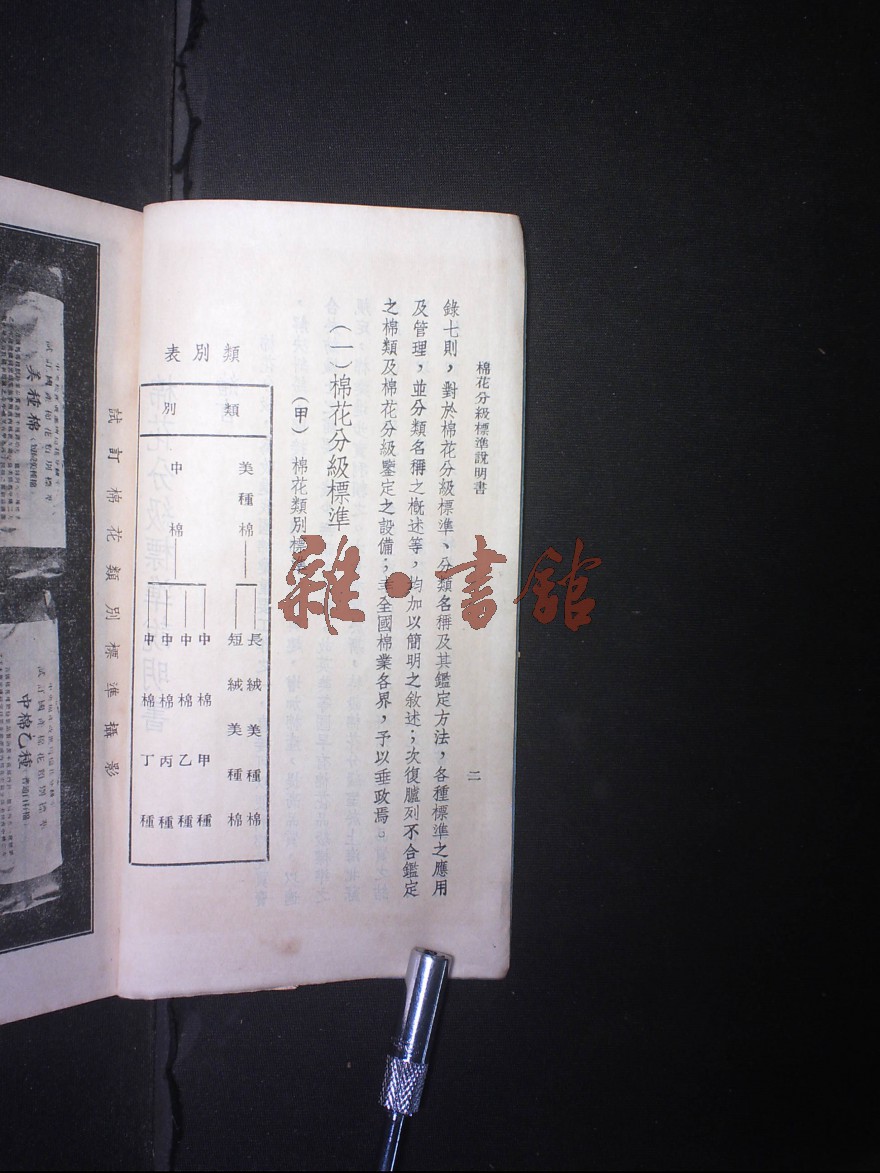 棉花分級標準說明書
二
錄七則，對於棉花分級標準、分類名稱及其鑑定方法，各種標準之應用
及管理，並分類名稱之概述等，均加以簡明之敘述；次復臚列不合鑑定
之棉類及棉花分級鑒定之設備；幸全國棉業各界，予以垂政焉。
（一）棉花分級標準
（甲）棉花類別標
類別表
類別
美種棉
長絨美種棉
短絨美種棉
中棉
中棉甲種
中棉乙種
中棉丙種
中棉丁種
雜·書館
試訂棉花類別標準攝影
試訂國產棉花類別標準
美種棉
試訂國產棉花類別標準
中棉乙種